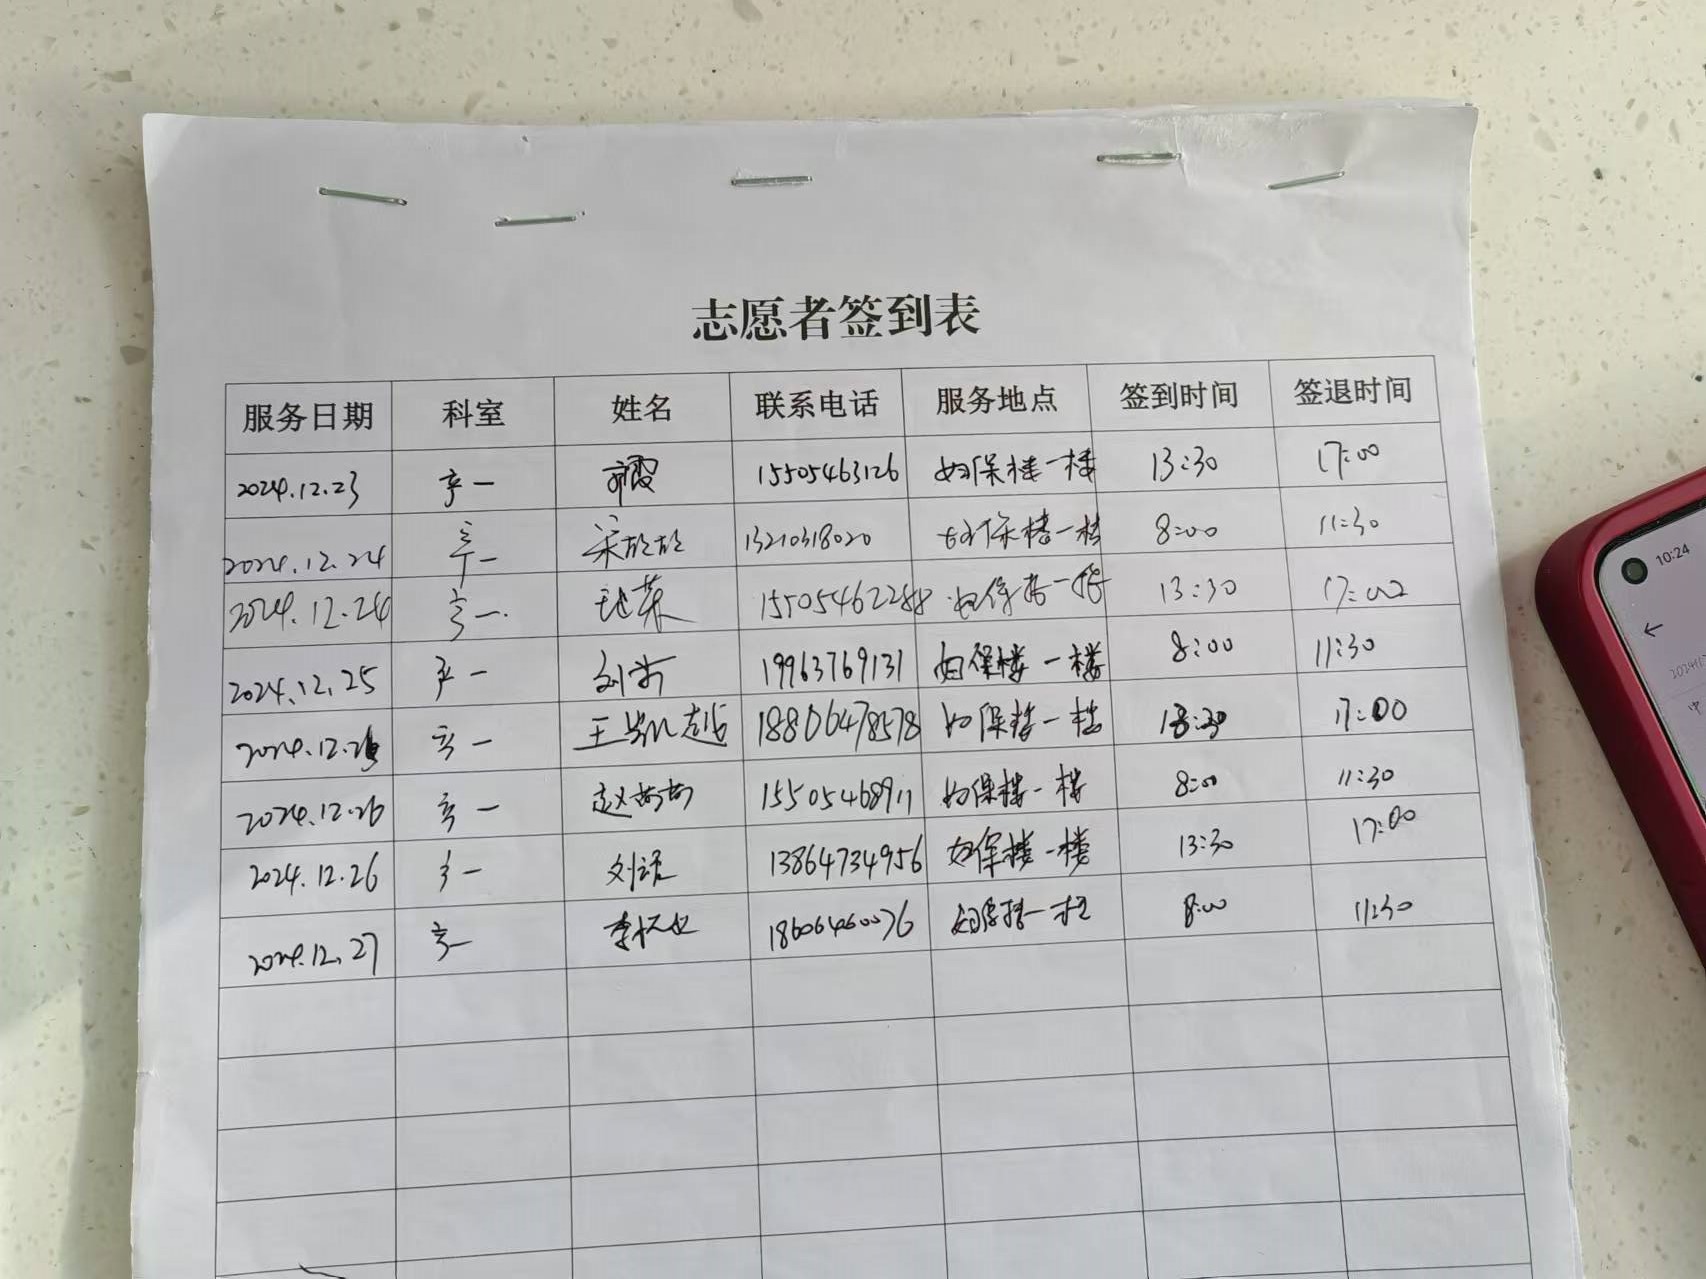 志愿者签到表
服务日期 科室 姓名 联系电话 服务地点 签到时间 签退时间
2024.12.23 产一 15505463126 妇保楼一楼 13:30 17:00
2024.12.24 产一 宋 13210318020 妇保楼一楼 8:00 11:30
2024.12.24 产一 15505462288 妇保楼一楼 13:30 17:00
2024.12.25 产一 刘 19963769131 妇保楼一楼 8:00 11:30
2024.12.25 产一 王凯越 18806478578 妇保楼一楼 13:30 17:00
2024.12.26 产一 赵苗苗 15505468911 妇保楼一楼 8:00 11:30
2024.12.26 产一 刘 13864734956 妇保楼一楼 13:30 17:00
2024.12.27 产一 李 18606460076 妇保楼一楼 8:00 11:30
10:24